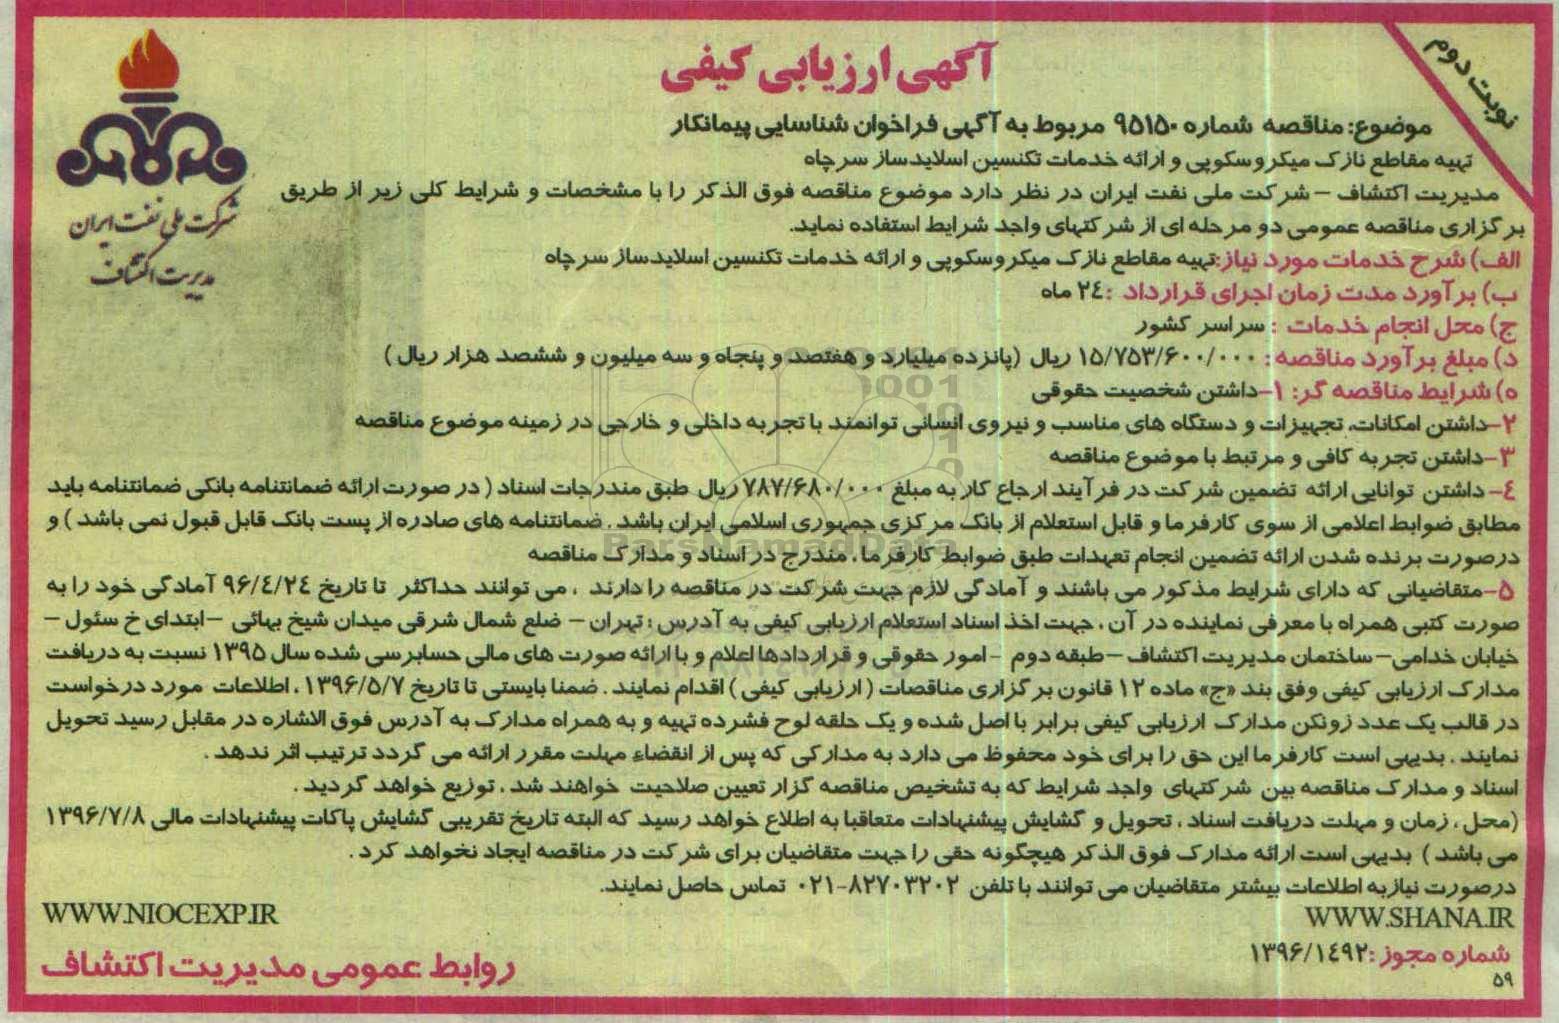 نوبت دوم
آگهی ارزیابی کیفی
موضوع: مناقصه شماره ۹۵۱۵۰ مربوط به آگهی فراخوان شناسایی پیمانکار
تهیه مقاطع نازک میکروسکوپی و ارائه خدمات تکنسین اسلایدساز سر چاه
شرکت ملی نفت ایران
مدیریت اکتشاف
مدیریت اکتشاف – شرکت ملی نفت ایران در نظر دارد موضوع مناقصه فوق الذکر را با مشخصات و شرایط کلی زیر از طریق
برگزاری مناقصه عمومی دو مرحله ای از شرکتهای واجد شرایط استفاده نماید.
الف) شرح خدمات مورد نیاز:تهیه مقاطع نازک میکروسکوپی و ارائه خدمات تکنسین اسلایدساز سر چاه
ب) برآورد مدت زمان اجرای قرارداد :۲٤ ماه
ج) محل انجام خدمات : سراسر کشور
د) مبلغ برآورد مناقصه : ۱۵/۷۵۳/۶۰۰/۰۰۰ ریال (پانزده میلیارد و هفتصد و پنجاه و سه میلیون و ششصد هزار ریال )
ه) شرایط مناقصه گر: ۱–داشتن شخصیت حقوقی
۲–داشتن امکانات، تجهیزات و دستگاه های مناسب و نیروی انسانی توانمند با تجربه داخلی و خارجی در زمینه موضوع مناقصه
۳–داشتن تجربه کافی و مرتبط با موضوع مناقصه
٤– داشتن توانایی ارائه تضمین شرکت در فرآیند ارجاع کار به مبلغ ۷۸۷/۶۸۰/۰۰۰ ریال طبق مندرجات اسناد ( در صورت ارائه ضمانتنامه بانکی ضمانتنامه باید
مطابق ضوابط اعلامی از سوی کارفرما و قابل استعلام از بانک مرکزی جمهوری اسلامی ایران باشد . ضمانتنامه های صادره از پست بانک قابل قبول نمی باشد ) و
درصورت برنده شدن ارائه تضمین انجام تعهدات طبق ضوابط کارفرما، مندرج در اسناد و مدارک مناقصه
۵–متقاضیانی که دارای شرایط مذکور می باشند و آمادگی لازم جهت شرکت در مناقصه را دارند ، می توانند حداکثر تا تاریخ ۹۶/٤/۲٤ آمادگی خود را به
صورت کتبی همراه با معرفی نماینده در آن ، جهت اخذ اسناد استعلام ارزیابی کیفی به آدرس : تهران – ضلع شمال شرقی میدان شیخ بهائی –ابتدای خ سئول –
خیابان خدامی– ساختمان مدیریت اکتشاف –طبقه دوم - امور حقوقی و قراردادها اعلام و با ارائه صورت های مالی حسابرسی شده سال ۱۳۹۵ نسبت به دریافت
مدارک ارزیابی کیفی وفق بند «ج» ماده ۱۲ قانون برگزاری مناقصات ( ارزیابی کیفی ) اقدام نمایند . ضمنا بایستی تا تاریخ ۱۳۹۶/۵/۷ ، اطلاعات مورد درخواست
در قالب یک عدد زونکن مدارک ارزیابی کیفی برابر با اصل شده و یک حلقه لوح فشرده تهیه و به همراه مدارک به آدرس فوق الاشاره در مقابل رسید تحویل
نمایند . بدیهی است کارفرما این حق را برای خود محفوظ می دارد به مدارکی که پس از انقضاء مهلت مقرر ارائه می گردد ترتیب اثر ندهد .
اسناد و مدارک مناقصه بین شرکتهای واجد شرایط که به تشخیص مناقصه گزار تعیین صلاحیت خواهند شد ، توزیع خواهد گردید .
(محل ، زمان و مهلت دریافت اسناد ، تحویل و گشایش پیشنهادات متعاقبا به اطلاع خواهد رسید که البته تاریخ تقریبی گشایش پاکات پیشنهادات مالی ۱۳۹۶/۷/۸
می باشد ) بدیهی است ارائه مدارک فوق الذکر هیچگونه حقی را جهت متقاضیان برای شرکت در مناقصه ایجاد نخواهد کرد .
درصورت نیاز به اطلاعات بیشتر متقاضیان می توانند با تلفن ۸۲۷۰۳۲۰۲-۰۲۱ تماس حاصل نمایند.
WWW.SHANA.IR
WWW.NIOCEXP.IR
شماره مجوز :۱۳۹۶/۱٤۹۲
روابط عمومی مدیریت اکتشاف
۵۹
ParsNamadData